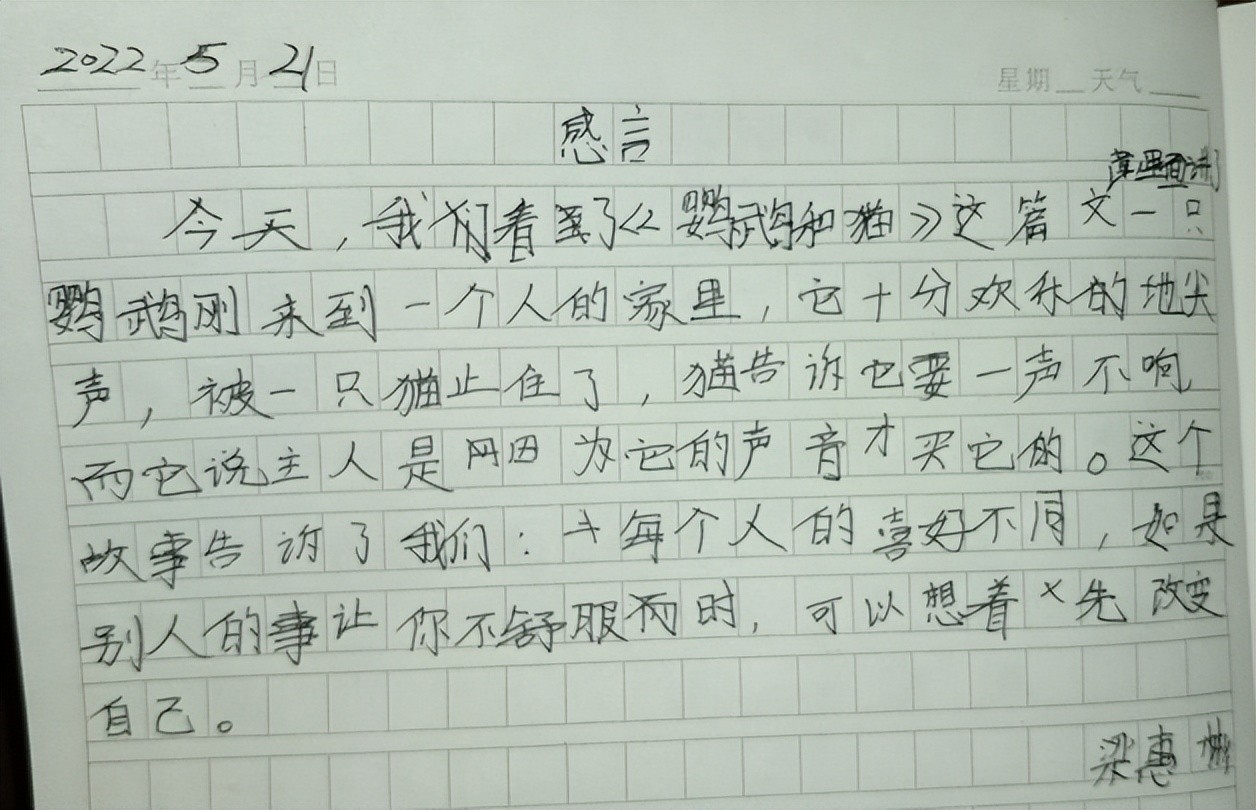 2022年5月21日
星期 天气
感言
章里面讲了
今天，我们看到了《鹦鹉和猫》这篇文一只
鹦鹉刚来到一个人的家里，它十分欢快的地尖
声，被一只猫止住了，猫告诉它要一声不响
而它说主人是因为它的声音才买它的。这个
故事告诉了我们：每个人的喜好不同，如果
别人的事让你不舒服而时，可以想着先改变
自己。
梁惠